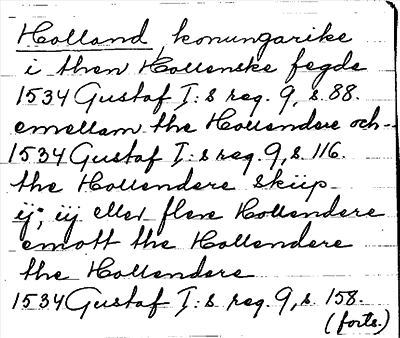 Holland, konungarike
i then Hollenske fegde
1534 Gustaf I:s reg. 9, s. 88.
emellam the Hollendere och -
1534 Gustaf I:s reg. 9, s. 116.
the Hollendere skiip
ij, iij eller flere Hollendere
emott the Hollendere
the Hollendere
1534 Gustaf I:s reg. 9, s. 158.
(forts.)